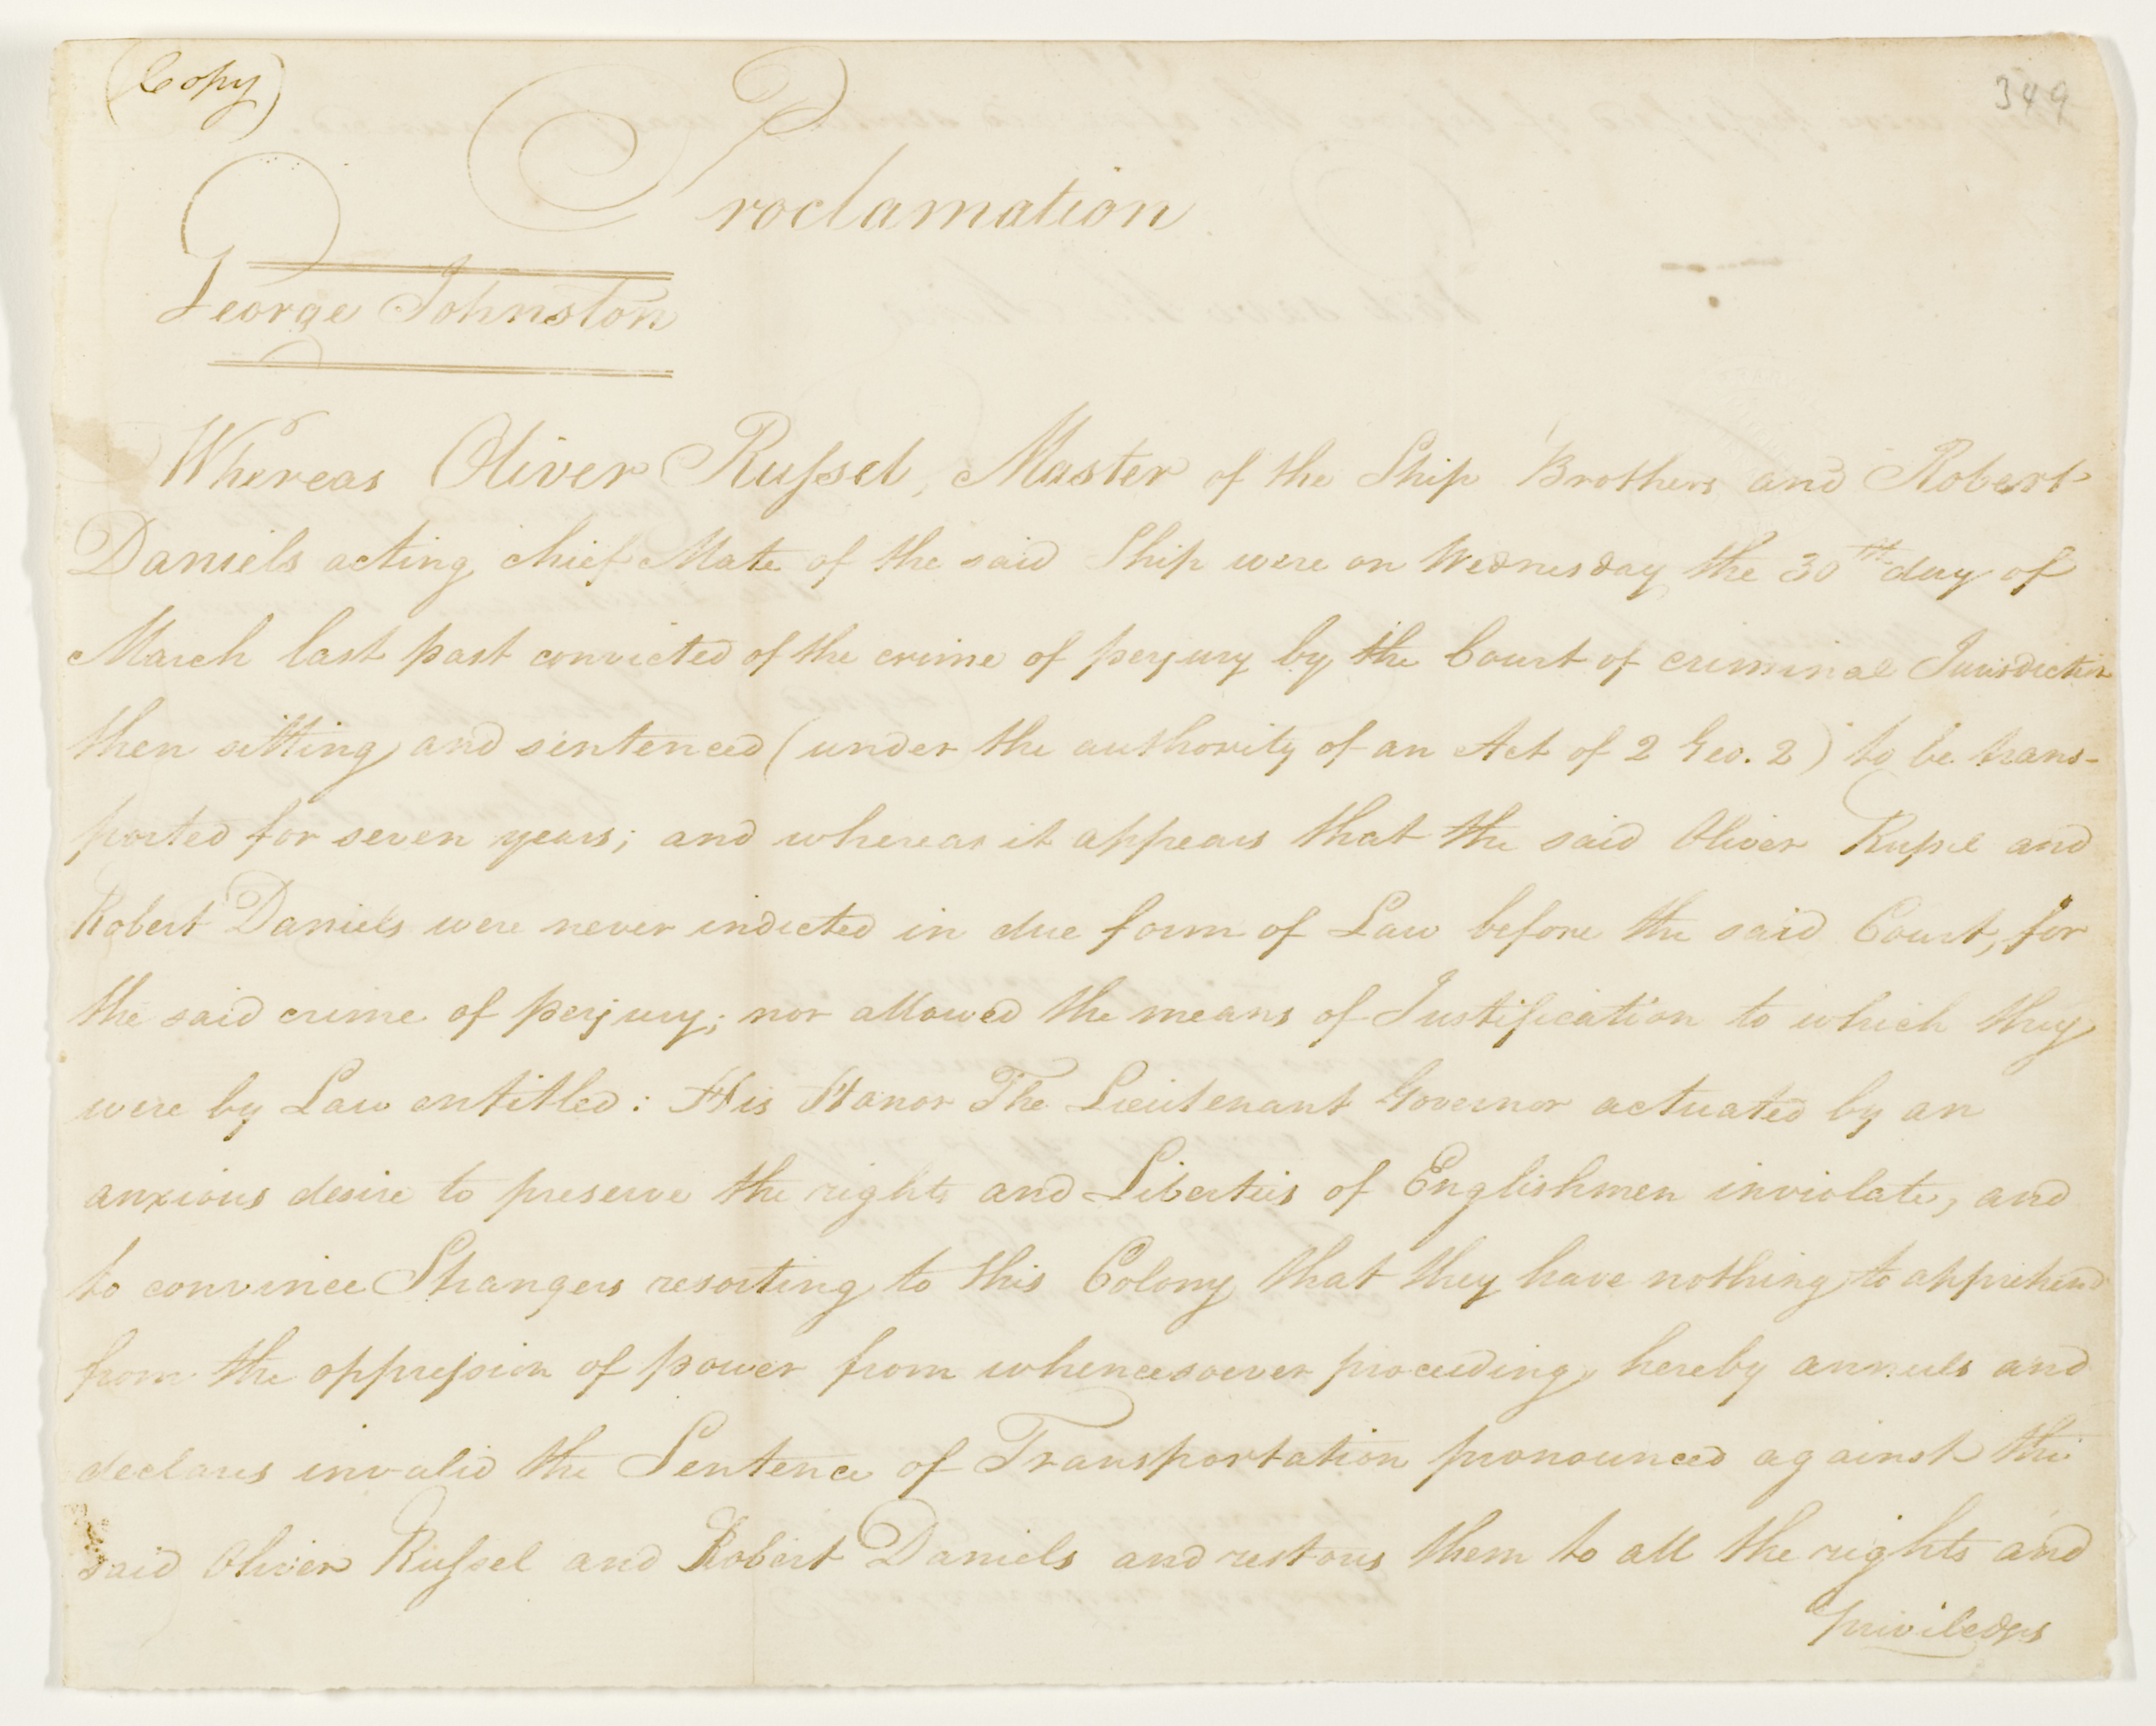 (Copy)
349
Proclamation
George Johnston
Whereas Oliver Russel, Master of the Ship Brothers and Robert
Daniels acting chief Mate of the said Ship were on Wednesday the 30th day of
March last past convicted of the crime of perjury by the Court of criminal Jurisdiction
then sitting and sentenced (under the authority of an Act of 2 Geo. 2) to be trans-
ported for seven years; and whereas it appears that the said Oliver Russel and
Robert Daniels were never indicted in due form of Law before the said Court, for
the said crime of perjury; nor allowed the means of Justification to which they
were by Law entitled: His Honor The Lieutenant Governor actuated by an
anxious desire to preserve the rights and Liberties of Englishmen inviolate, and
to convince Strangers resorting to this Colony that they have nothing to apprehend
from the oppression of power from whencesoever proceeding, hereby annuls and
declares invalid the Sentence of Transportation pronounced against the
said Oliver Russel and Robert Daniels and restores them to all the rights and
priviledges